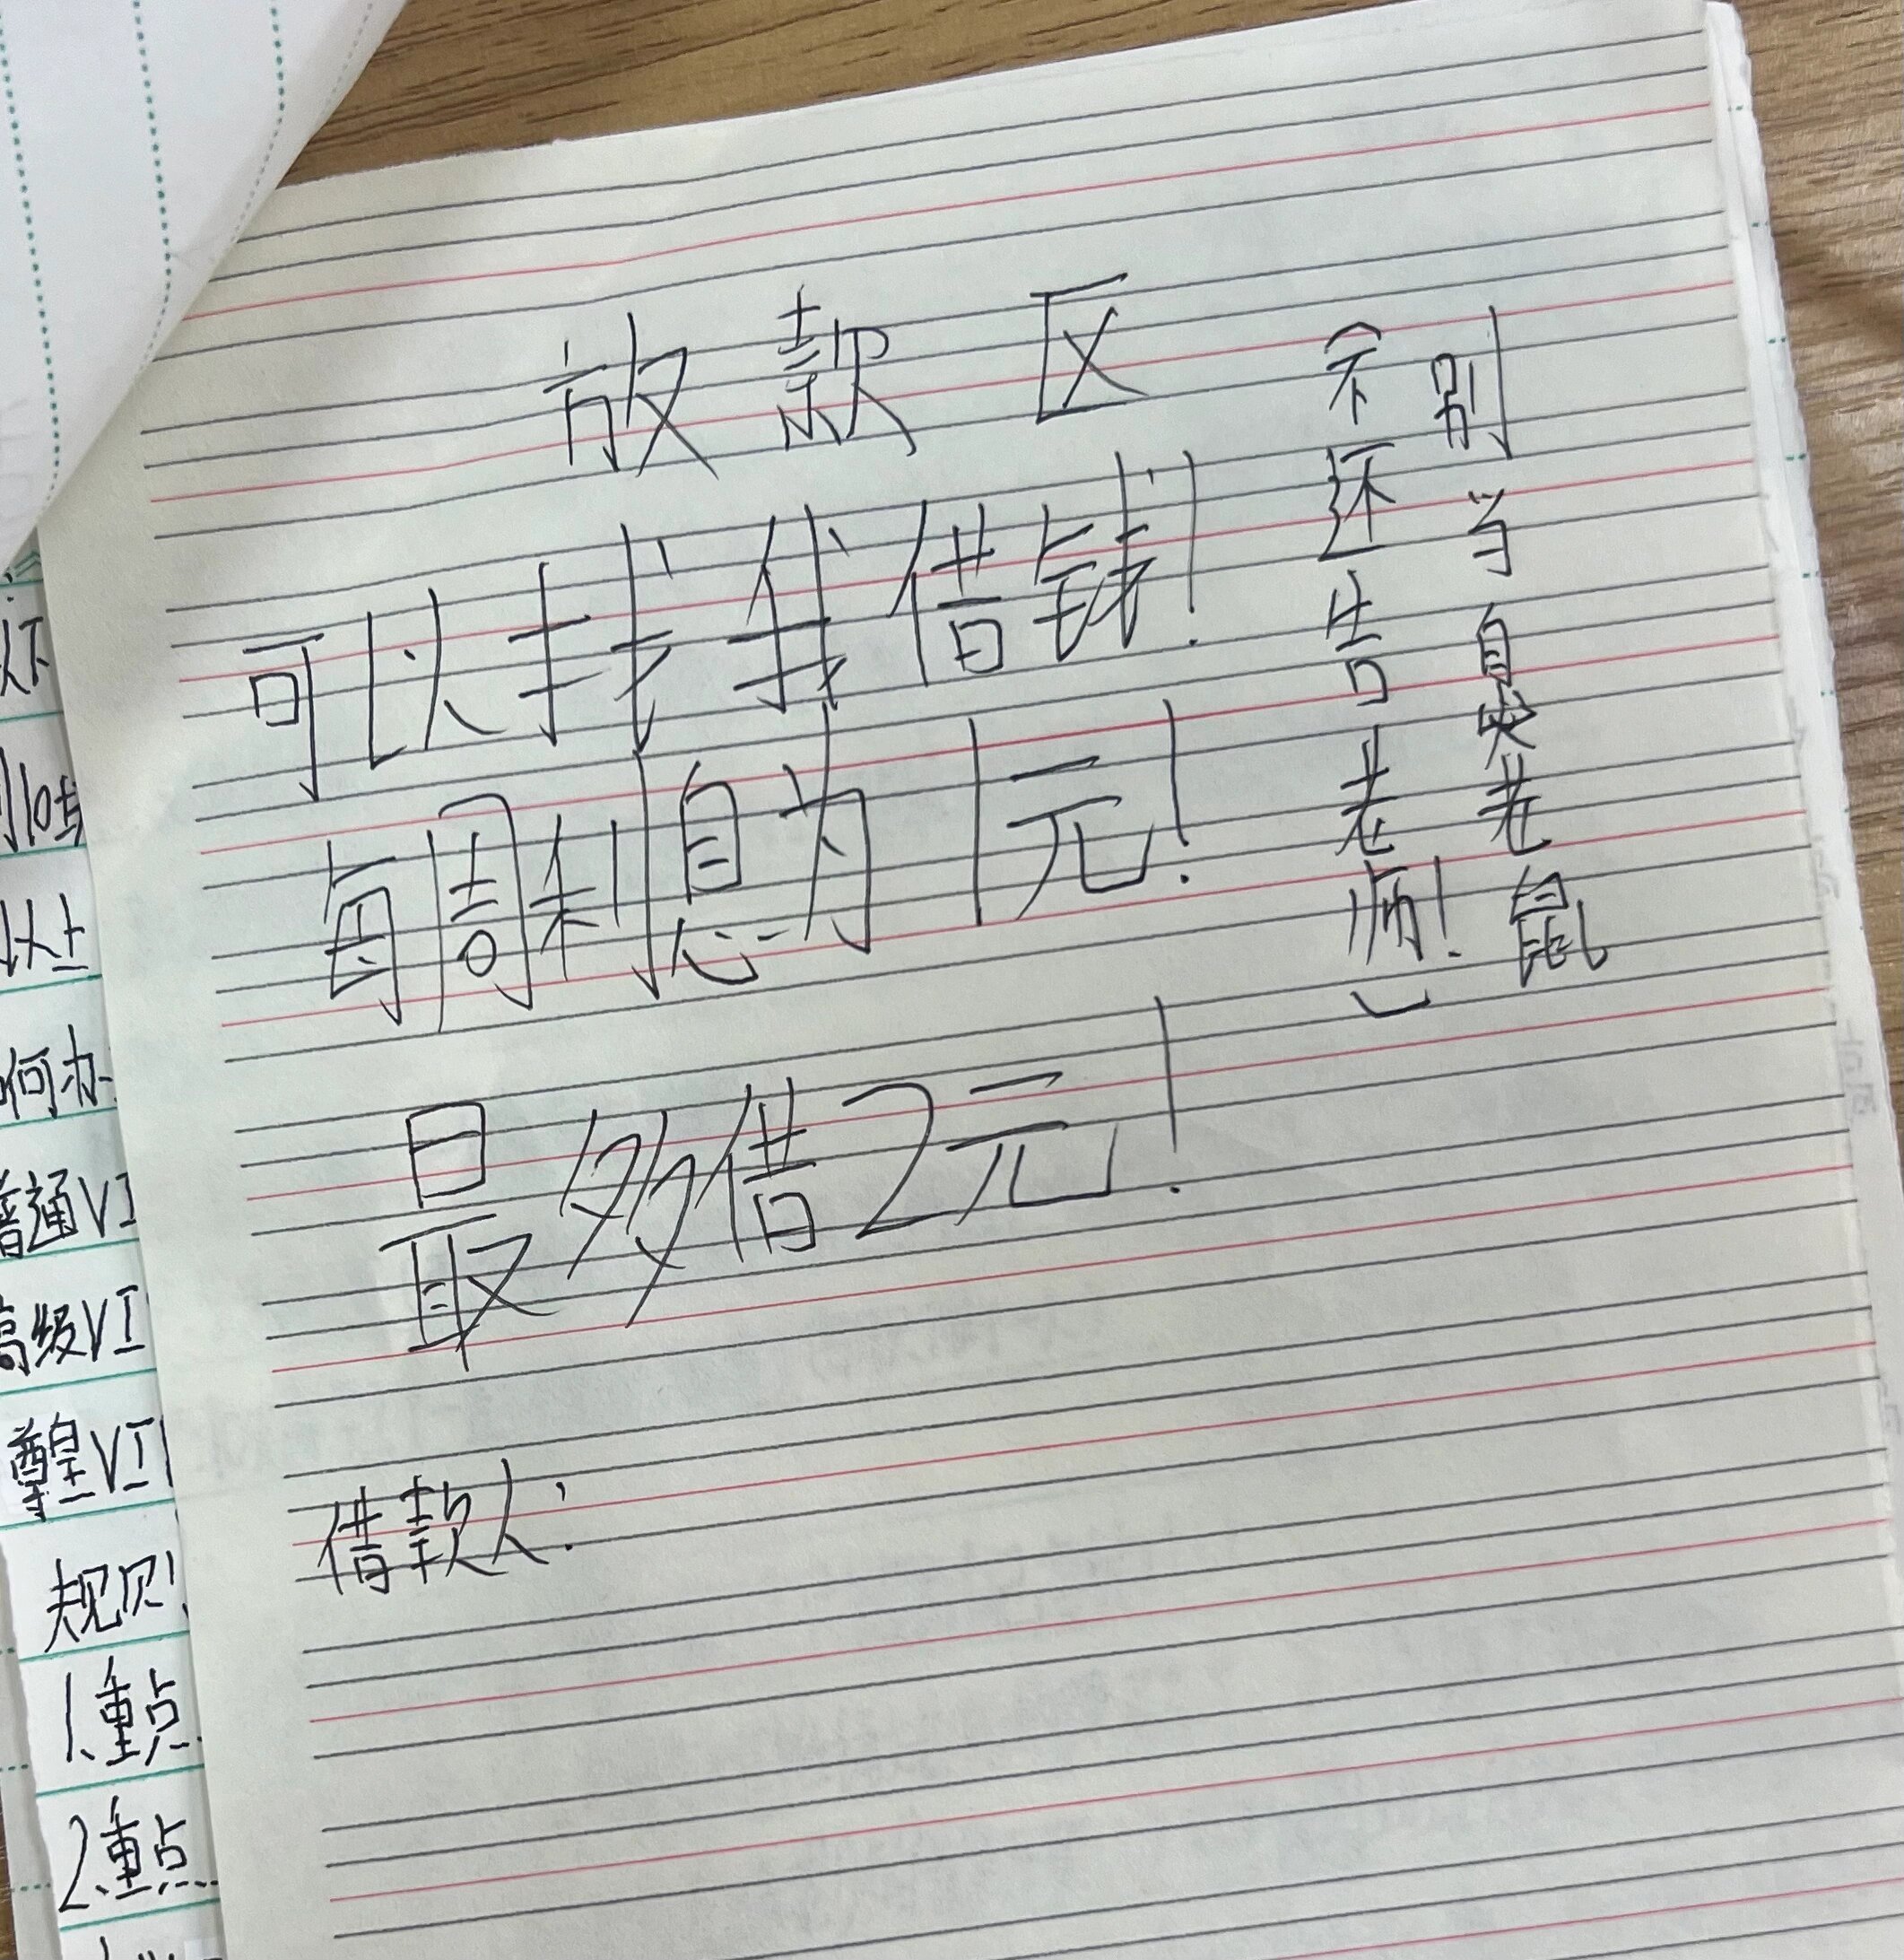 放款区
可以找我借钱!
每周利息为1元!
最多借2元!
借款人:
别当臭老鼠
(不还告老师!)
何办
普通VI
高级VI
尊皇VI
规则
1.重点
2.重点